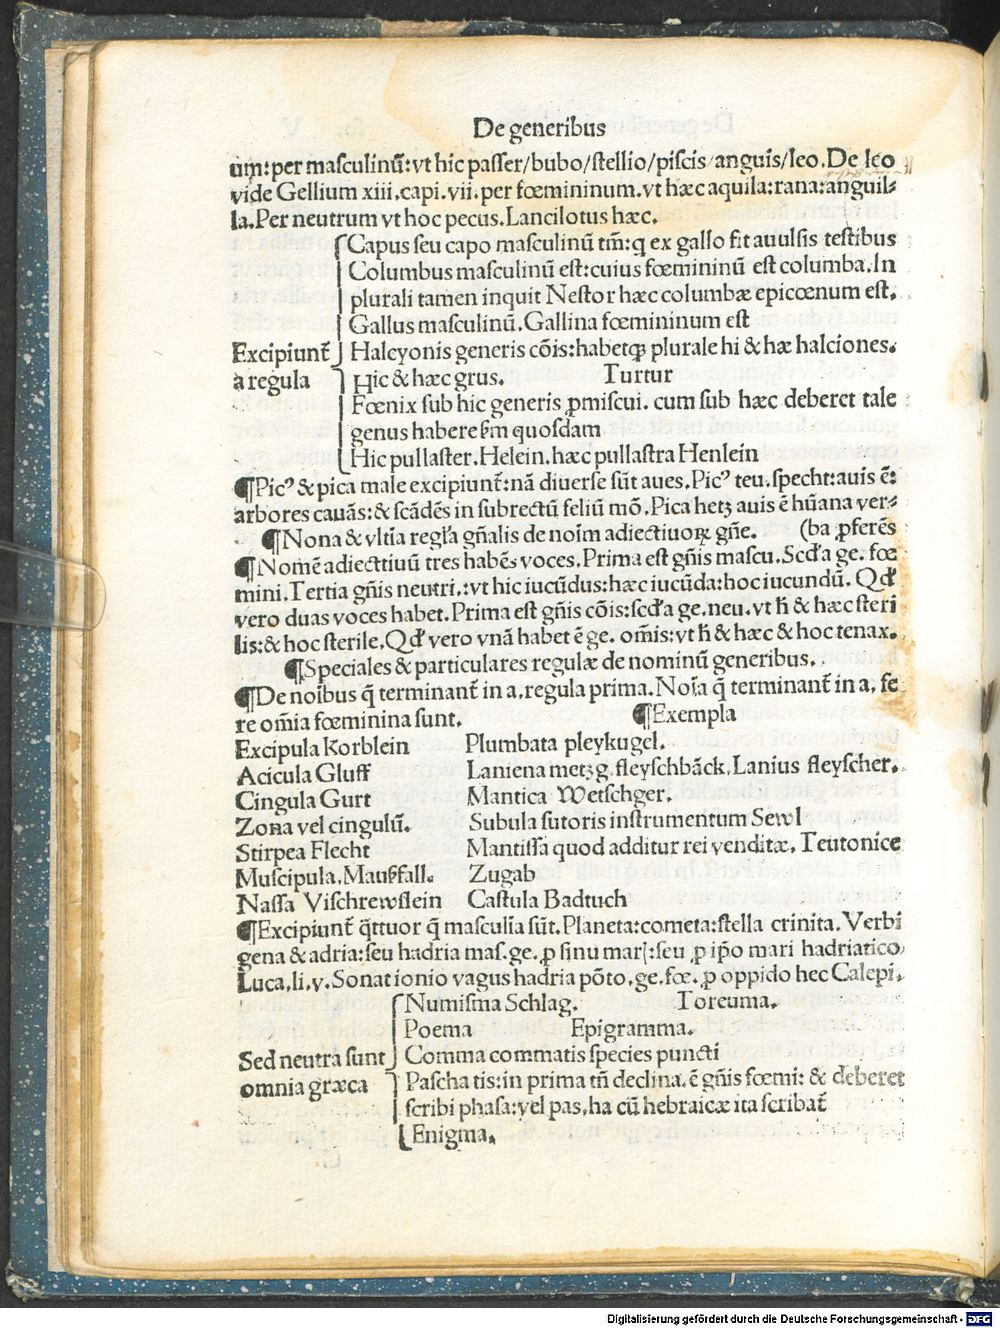 De generibus
um: per masculinū: vt hic passer/bubo/stellio/piscis/anguis/leo. De leo
vide Gellium xiii. capi. vii. per fœmininum. vt hæc aquila: rana: anguil-
la. Per neutrum vt hoc pecus. Lancilotus hæc.
Capus seu capo masculinū tm̄: q ex gallo fit auulsis testibus
Columbus masculinū est: cuius fœmininū est columba. In
plurali tamen inquit Nestor hæc columbæ epicœnum est.
Gallus masculinū. Gallina fœmininum est
Excipiunt̄ Halcyonis generis cōis: habetqꝫ plurale hi & hæ halciones.
a regula Hic & hæc grus. Turtur
Fœnix sub hic generis ꝓmiscui. cum sub hæc deberet tale
genus habere ßm quosdam
Hic pullaster. Helein. hæc pullastra Henlein
¶Picꝰ & pica male excipiunt̄: nā diuerse sūt aues. Picꝰ teu. specht: auis ē:
arbores cauās: & scādēs in subrectū feliū mō. Pica hetz auis ē hūana ver-
¶Nona & vltīa regl̄a gn̄alis de noīm adiectiuoꝝ gn̄e. (ba ꝓferēs
¶Nomē adiecttiuū tres habēs voces. Prima est gn̄is mascu. Scd̄a ge. fœ
mini. Tertia gn̄is neutri.: vt hic iucūdus: hæc iucūda: hoc iucundū. Qd̄
vero duas voces habet. Prima est gn̄is cōis: scd̄a ge. neu. vt h̄ & hæc steri
lis: & hoc sterile. Qd̄ vero vnā habet ē ge. om̄is: vt h̄ & hæc & hoc tenax.
¶Speciales & particulares regulæ de nominū generibus.
¶De noībus q̄ terminant̄ in a. regula prima. Noīa q̄ terminant̄ in a. fe
re om̄ia fœminina sunt. ¶Exempla
Excipula Korblein Plumbata pleykugel.
Acicula Gluff Laniena metzg. fleyschbāck. Lanius fleyscher.
Cingula Gurt Mantica Wetschger.
Zona vel cingulū. Subula sutoris instrumentum Sewl
Stirpea Flecht Mantissa quod additur rei venditæ. Teutonice
Muscipula. Maußfall. Zugab
Nassa Vischrewslein Castula Badtuch
¶Excipiunt̄ q̄ttuor q̄ masculīa sūt. Planeta: cometa: stella crinita. Verbi
gena & adria: seu hadria mas. ge. ꝓ sinu mar: seu ꝓ ip̄o mari hadriatico
Luca. li. v. Sonat ionio vagus hadria pōto. ge. fœ. ꝓ oppido hec Calepi.
Numisma Schlag. Toreuma.
Poema Epigramma.
Sed neutra sunt Comma commatis species puncti
omnia græca Pascha tis: in prima tn̄ declina. ē gn̄is fœmi: & deberet
scribi phasa: vel pas, ha cū hebraicæ ita scribat̄
Enigma.
Digitalisierung gefördert durch die Deutsche Forschungsgemeinschaft - DFG